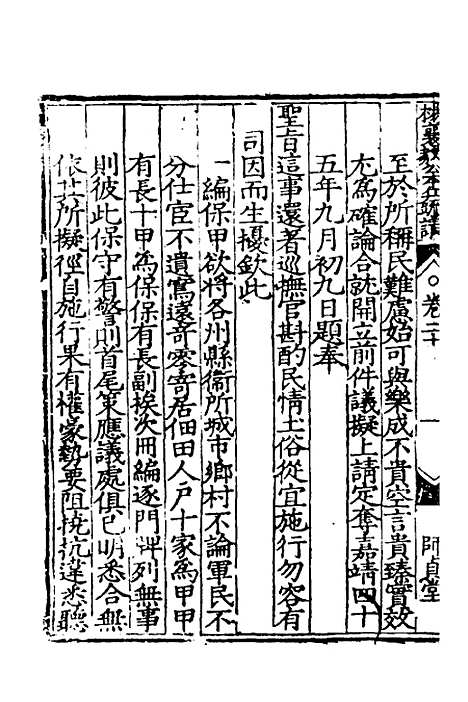 楊襄毅公本兵疏議
卷二十
一
師貞堂
至於所稱民難慮始可與樂成不貴空言貴臻實效
尤為確論合就開立前件議擬上請定奪嘉靖四十
五年九月初九日題奉
聖旨這事還著巡撫官斟酌民情土俗從宜施行勿容有
司因而生擾欽此
一編保甲欲將各州縣衞所城市鄉村不論軍民不
分仕宦不遺寫遠竒零寄居佃田人戶十家為甲甲
有長十甲為保保有長副挨次冊編逐門牌列無事
則彼此保守有警則首尾策應議處俱已明悉合無
依其所擬徑自施行果有權豪勢要阻撓抗違悉聽